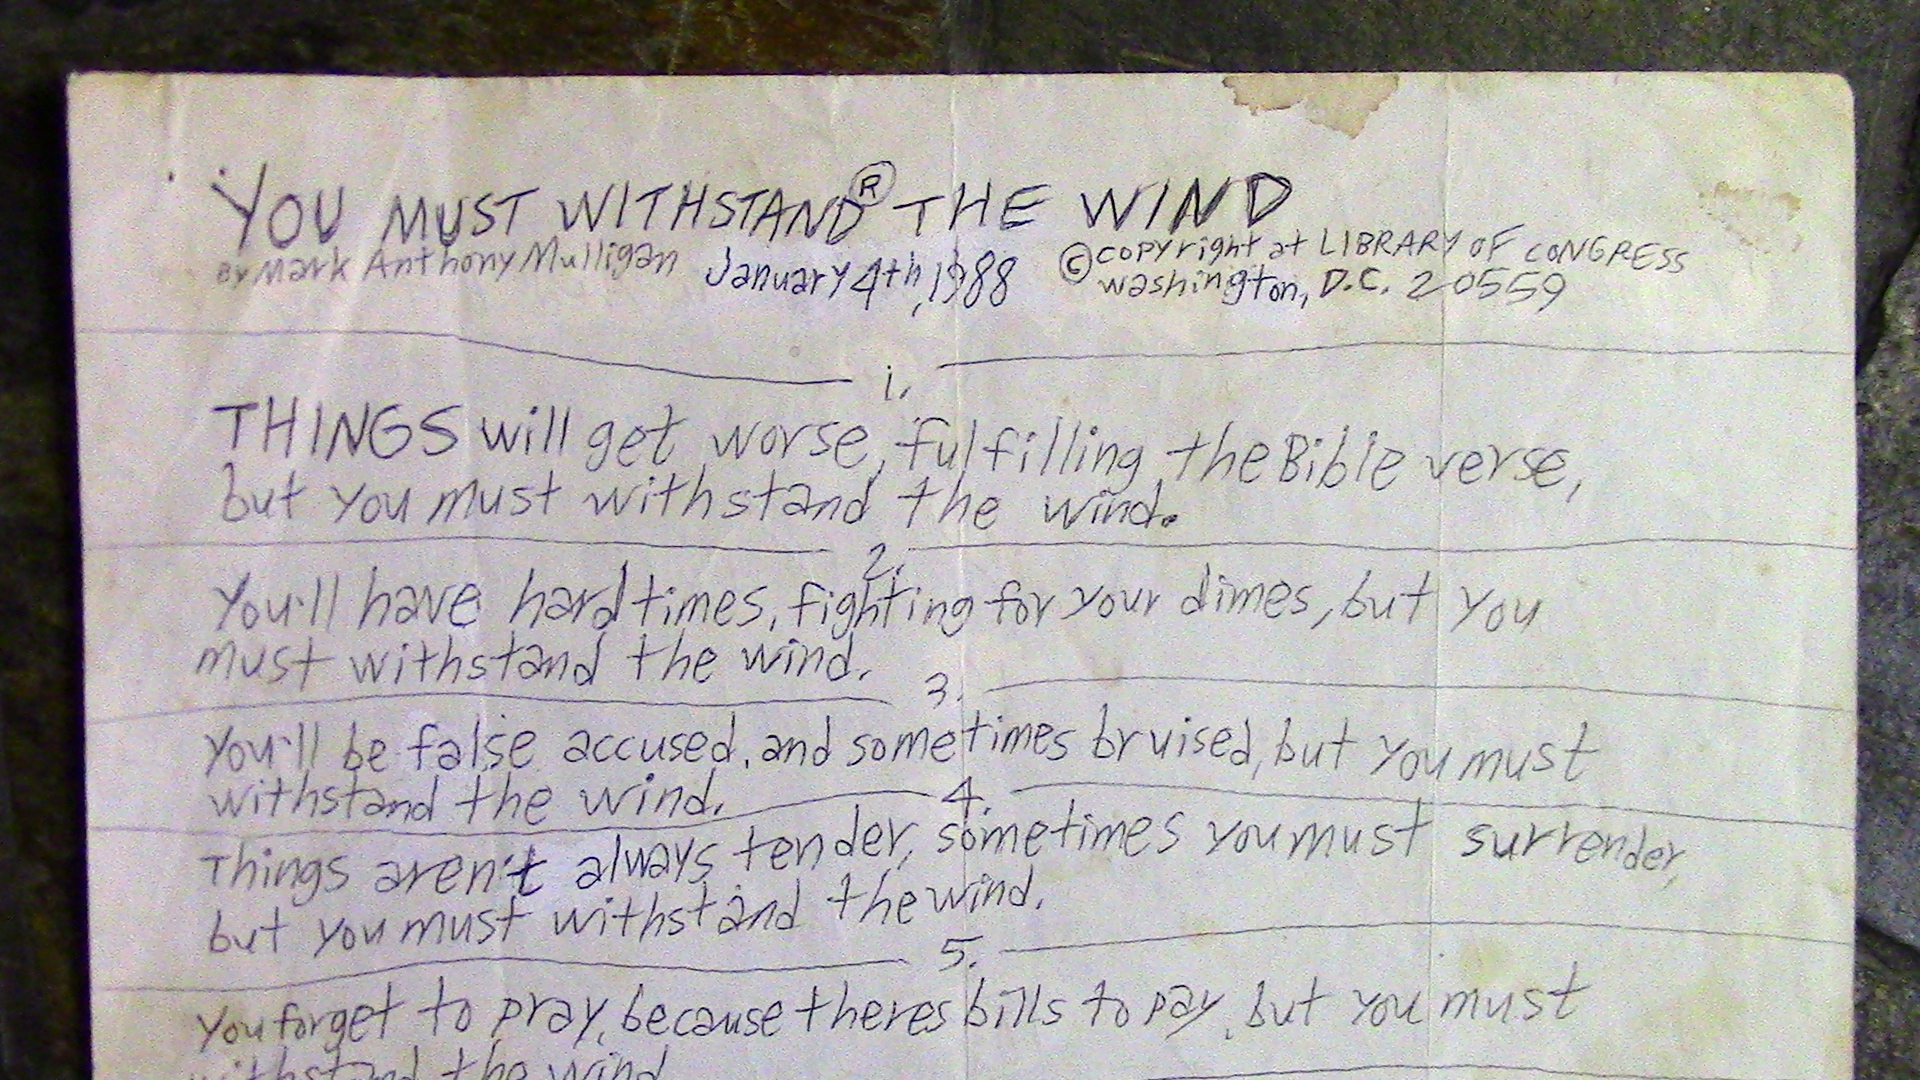 YOU MUST WITHSTAND® THE WIND
BY Mark Anthony Mulligan January 4th, 1988 © copyright at LIBRARY OF CONGRESS
washington, D.C. 20559
1.
THINGS will get worse, fulfilling the Bible verse,
but you must withstand the wind.
2.
You'll have hard times, fighting for your dimes, but you
must withstand the wind.
3.
You'll be false accused, and sometimes bruised, but you must
withstand the wind.
4.
Things aren't always tender, sometimes you must surrender,
but you must withstand the wind.
5.
You forget to pray, because theres bills to pay, but you must
withstand the wind